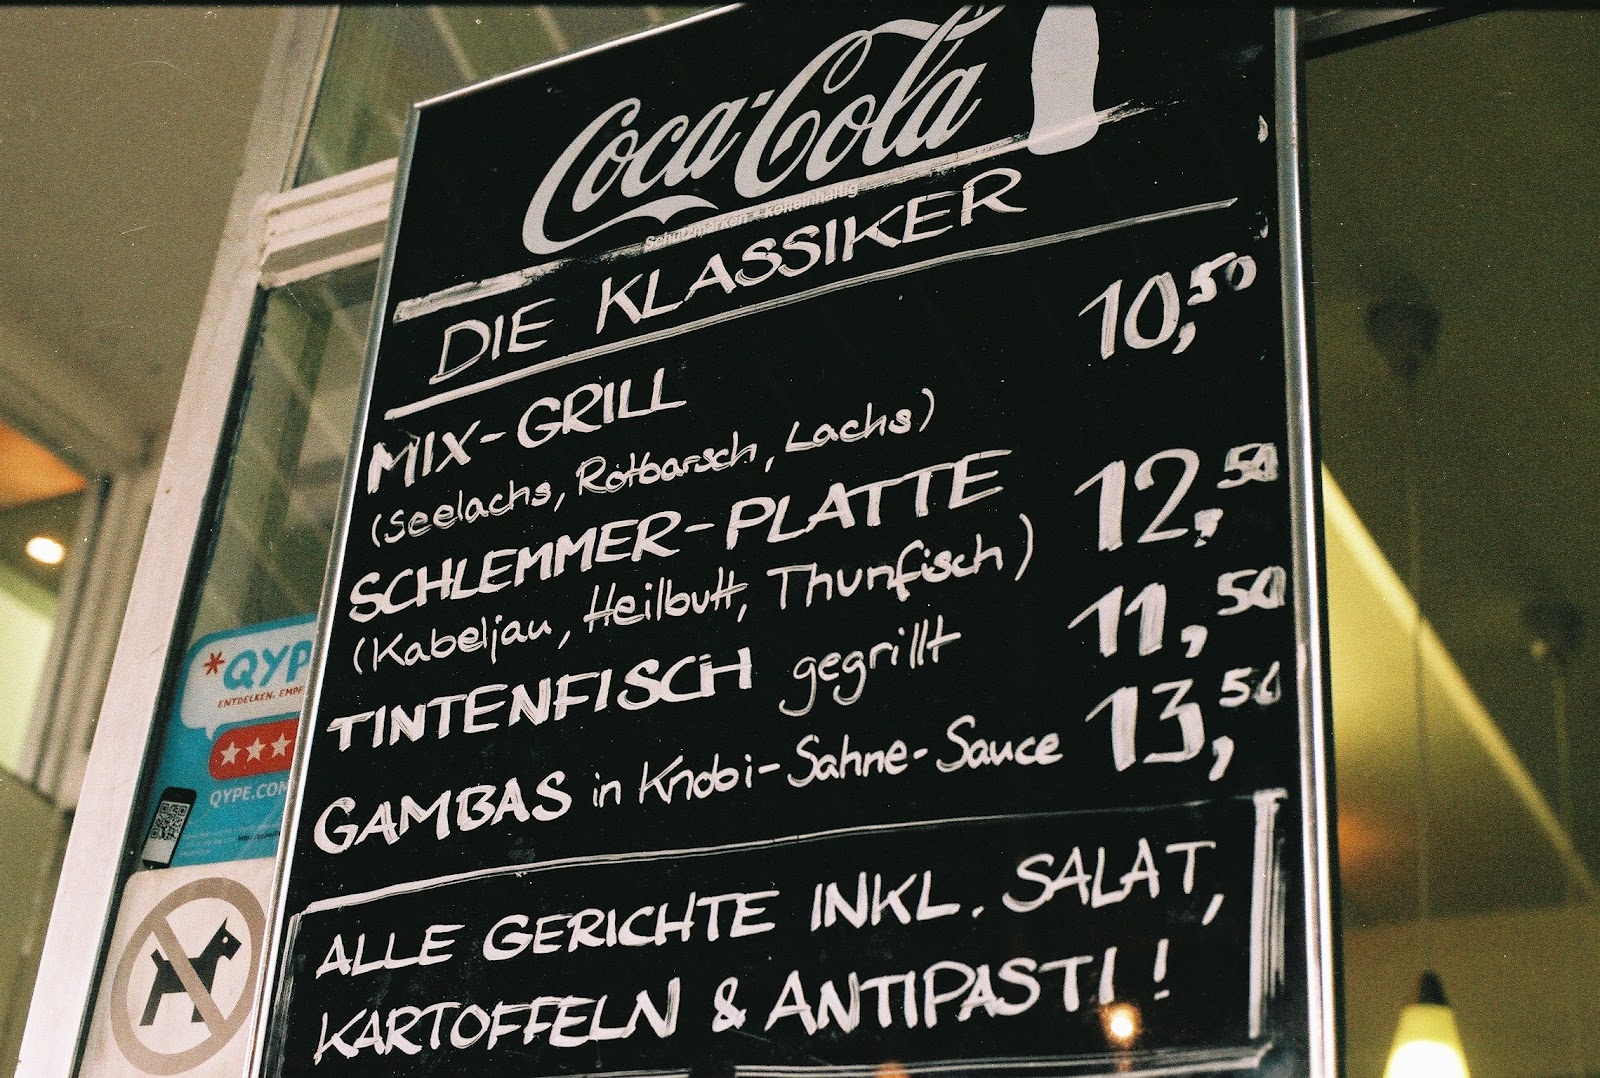 Coca-Cola
Schutzmarken • koffeinhaltig
DIE KLASSIKER
MIX-GRILL 10,50
(Seelachs, Rotbarsch, Lachs)
SCHLEMMER-PLATTE 12,50
(Kabeljau, Heilbutt, Thunfisch)
TINTENFISCH gegrillt 11,50
GAMBAS in Knobi-Sahne-Sauce 13,50
ALLE GERICHTE INKL. SALAT,
KARTOFFELN & ANTIPASTI!
*QYP
ENTDECKEN. EMPF
QYPE.COM